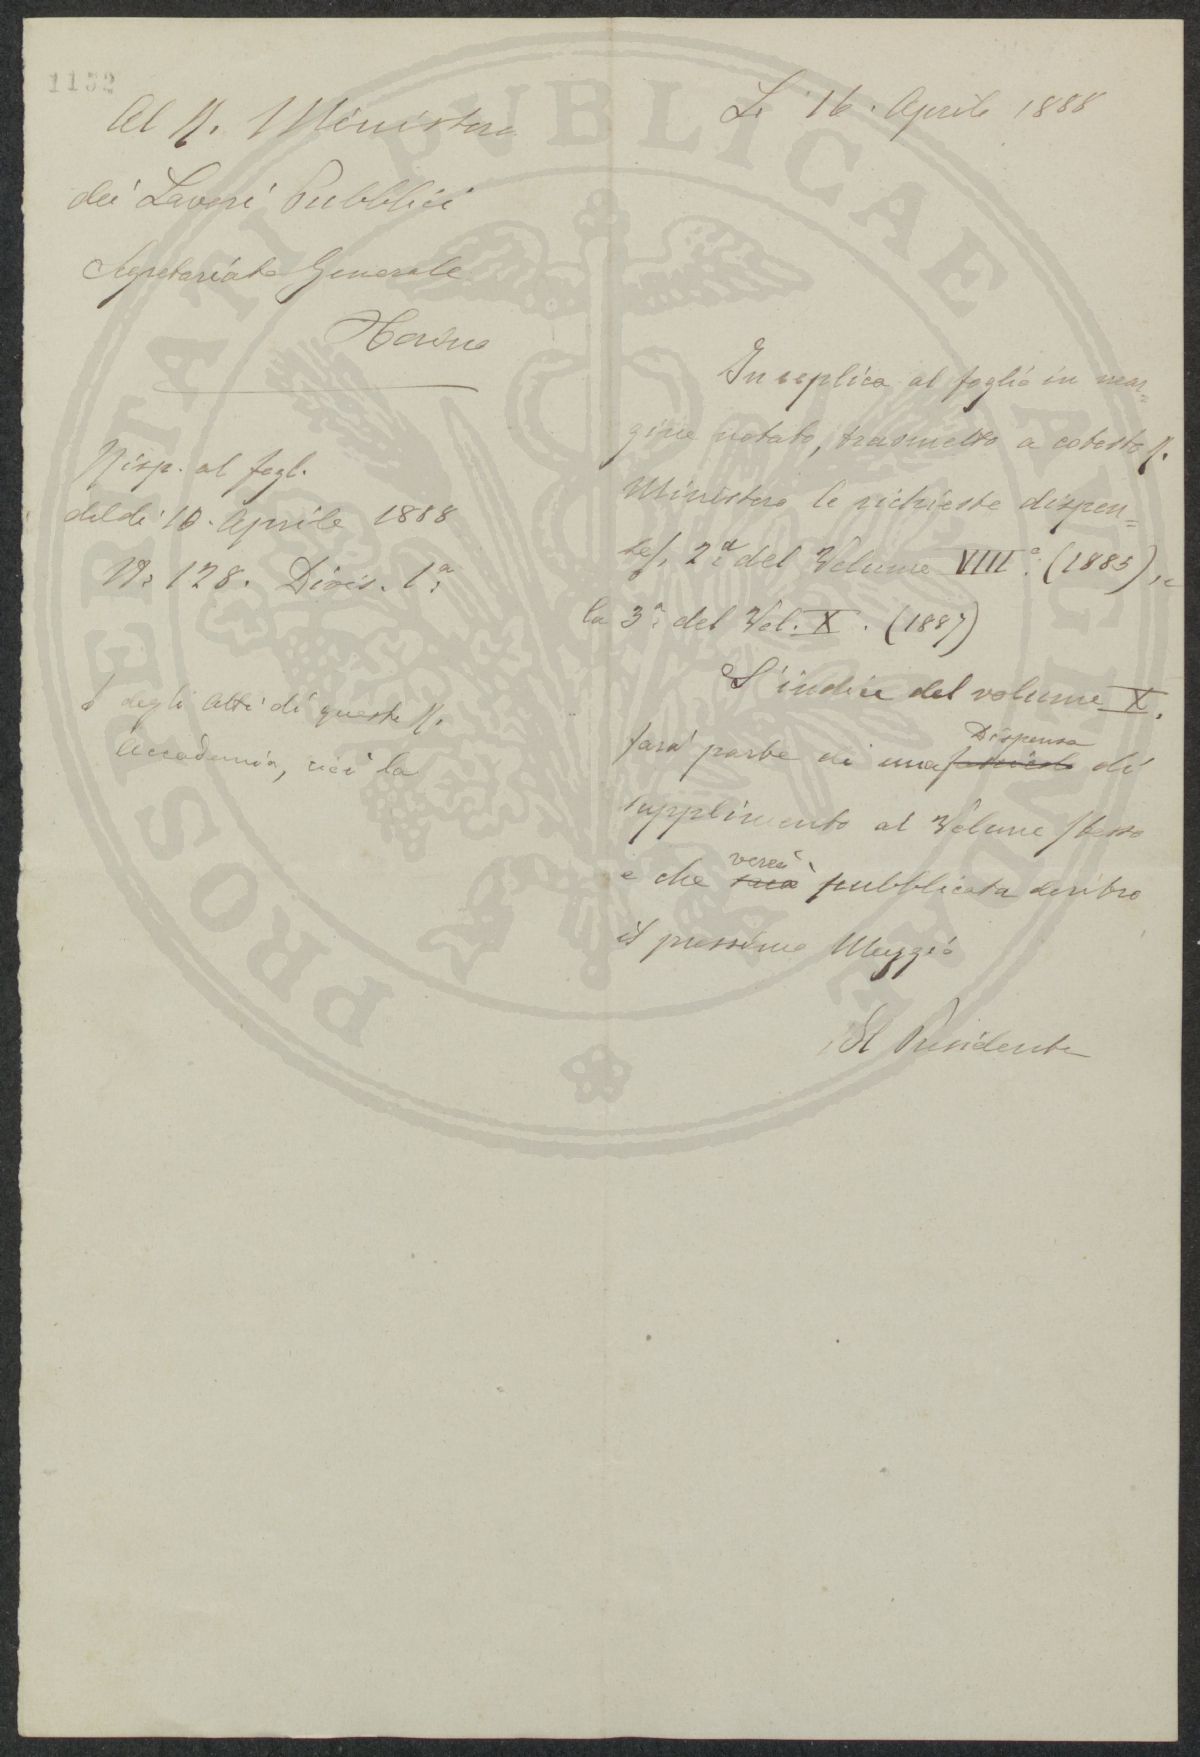 1132
Li 16. Aprile 1888
Al R. Ministero
dei Lavori Pubblici
Segretariato Generale
Roma
Risp. al fogl.
del dì 10. Aprile 1888
N: 128. Divis. 1ª
degli Atti di questa R.
Accademia, cioè la
In replica al foglio in mar=
gine notato, trasmetto a cotesto R.
Ministero le richieste dispen=
se, 2ª del Volume VIIIº. (1885), e
la 3ª del Vol. X. (1887)
L'indice del volume X.
farà parte di una Dispensa di
supplimento al Volume stesso
e che sarà verrà pubblicata dentro
il prossimo Maggio
Il Presidente
PROSPERITATI PVBLICAE AVGENDAE